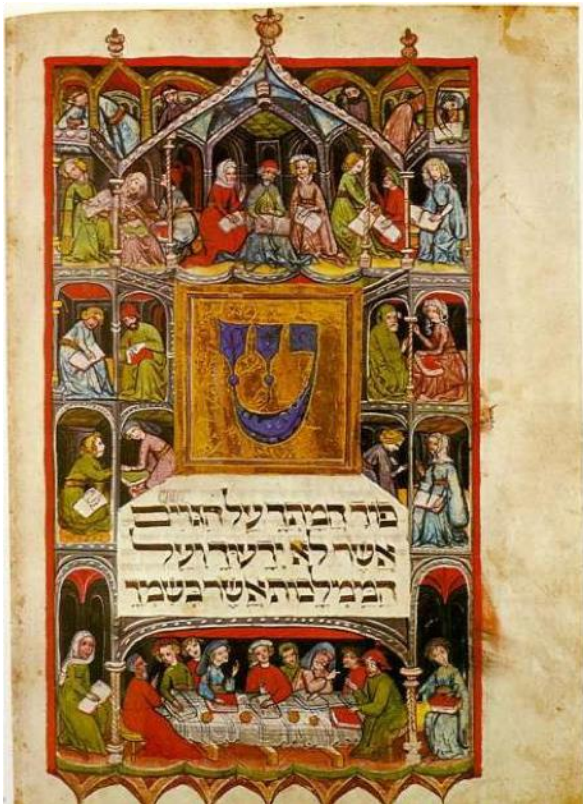 ש
פוך חמתך על הגוים
אשר לא ידעוך ועל
הממלכות אשר בשמך